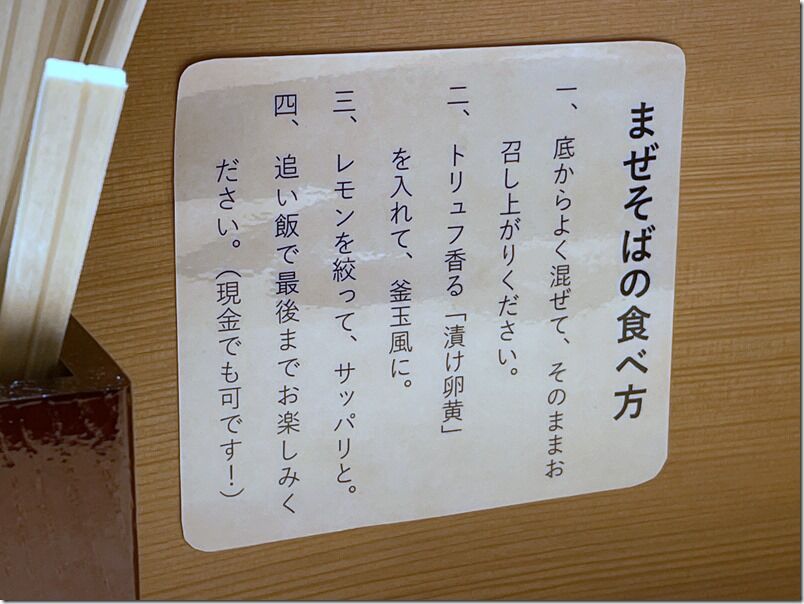 まぜそばの食べ方
一、底からよく混ぜて、そのままお
召し上がりください。
二、トリュフ香る「漬け卵黄」
を入れて、釜玉風に。
三、レモンを絞って、サッパリと。
四、追い飯で最後までお楽しみく
ださい。（現金でも可です！）